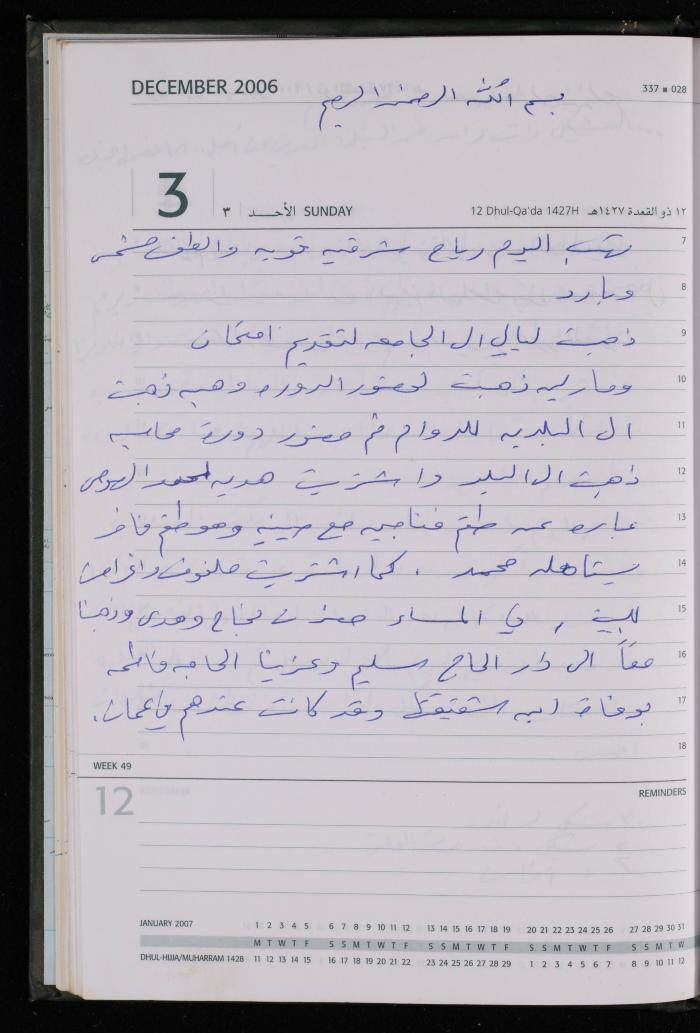 DECEMBER 2006
بسم الله الرحمن الرحيم
337 ■ 028
3
٣ الأحـــد SUNDAY
12 Dhul-Qa'da 1427H ١٢ ذو القعدة ١٤٢٧هـ
7 تهب اليوم رياح شرقيه قويه والطقس مشمس
8 وبارد
9 ذهبت ليالي الى الجامعه لتقديم امتحان
10 وماريه ذهبت لحضور الدوره وهبه ذهبت
11 الى البلديه للدوام ثم حضور دورة محاسبه
12 ذهبت الى البلد واشتريت هديه لمحمد
13 عباره عن طقم فناجين مع صينيه وهو طقم فاخر
14 يستاهله محمد . كما اشتريت ملفوف واغراض
15 للبيت , في المساء حضرت نجاح وهدى وذهبنا
16 معاً الى دار الحاج سليم وعزينا الحاجه فاطمه
17 بوفاة ابن شقيقها وقد كانت عندهم في عمان .
18
WEEK 49
12
REMINDERS
JANUARY 2007 1 2 3 4 5 6 7 8 9 10 11 12 13 14 15 16 17 18 19 20 21 22 23 24 25 26 27 28 29 30 31
M T W T F S S M T W T F S S M T W T F S S M T W T F S S M T W
DHUL-HIJJA/MUHARRAM 1428 11 12 13 14 15 16 17 18 19 20 21 22 23 24 25 26 27 28 29 1 2 3 4 5 6 7 8 9 10 11 12